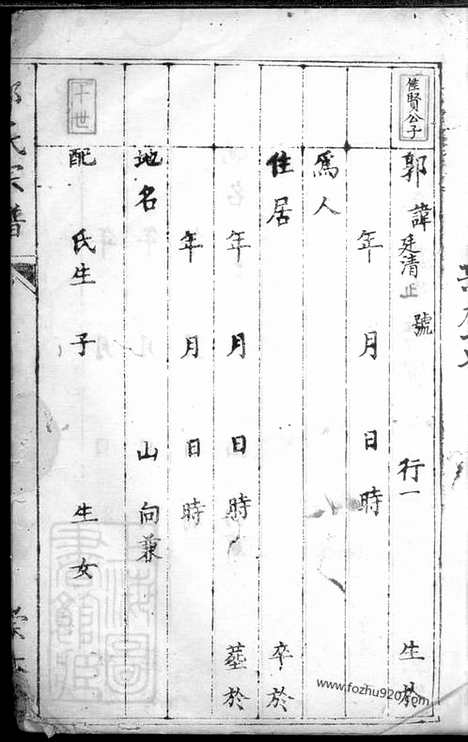 佳賢公子
郭 諱廷清 正 號 行一 生於
年 月 日 時
為人
住居 卒於
年 月 日 時 墓於
年 月 日 時
地名 山 向兼
十世
配 氏生 子 生女
氏宗譜
www.fozhu920.com